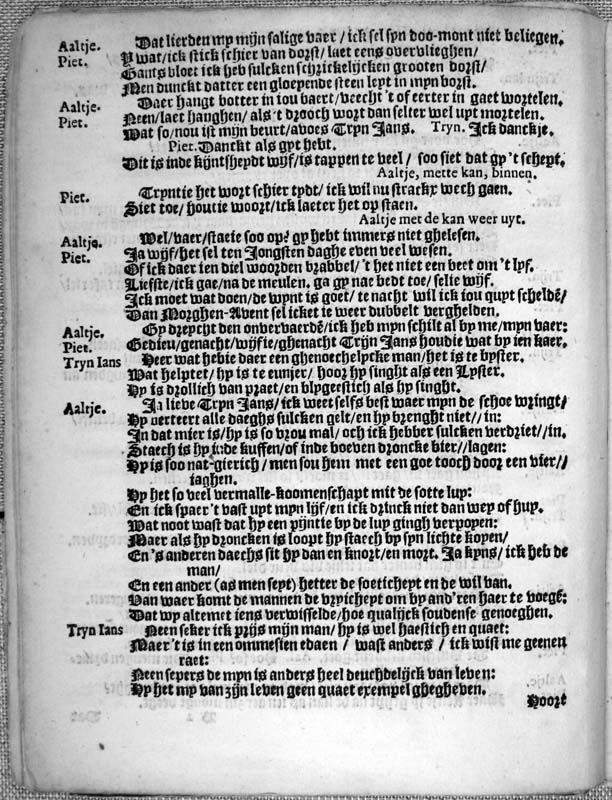 Aaltje. Dat lierden my mijn salige vaer / ick sel syn doo-mont niet beliegen.
Piet. Y wat / ick stick schier van dorst / laet eens overvlieghen /
Gants bloet ick heb sulcken schrickelijcken grooten dorst /
Men dunckt datter een gloepende steen leyt in myn borst.
Aaltje. Daer hangt botter in iou baert / veecht 't of eerter in gaet wortelen.
Piet. Neen / laet hanghen / als 't drooch wort dan selter wel uyt mortelen.
Wat so / nou ist mijn beurt / avoes Tryn Jans. Tryn. Ick danckje.
Piet. Danckt als gyt hebt.
Dit is inde kijntsheydt wijf / is tappen te veel / soo siet dat gy 't schept.
Aaltje, mette kan, binnen.
Piet. Tryntie het wort schier tydt / ick wil nu strackx wech gaen.
Siet toe / houtie woort / ick laeter het op staen.
Aaltje met de kan weer uyt.
Aaltje. Wel / vaer / staeie soo op? gy hebt immers niet ghelesen.
Piet. Ja wijf / het sel ten Jongsten daghe even veel wesen.
Of ick daer ien diel woorden brabbel / 't het niet een beet om 't lyf.
Liefste / ick gae / na de meulen. ga gy nae bedt toe / selie wijf.
Ick moet wat doen / de wynt is goet / te nacht wil ick iou quyt scheldē /
Van Morghen-Avent sel icket ie weer dubbelt verghelden.
Aaltje. Gy dreycht den onvervaerdē / ick heb myn schilt al by me / myn vaer:
Piet. Gedieu / genacht / wijfie / ghenacht Trijn Jans houdie wat by ien kaer.
Tryn Ians Heer wat hebie daer een ghenoechelycke man / het is te byster.
Wat helptet / hy is te eunjer / hoor hy singht als een Lyster.
Hy is drollich van praet / en blygeestich als hy singht.
Aaltje. Ja liebe Tryn Jans / ick weet selfs best waer myn de schoe wringt /
Hy verteert alle daeghs sulcken gelt / en hy brenght niet // in:
In dat mier is / hy is so vrou mal / och ick hebber sulcken verdriet // in.
Staech is hy inde kuffen / of inde boeven droncke bier // lagen:
Hy is soo nat-gierich / men sou hem met een goe tooch door een vier //
iaghen.
Hy het so veel vermalle-koomenschapt mit de sotte luy:
En ick spaer't vast uyt myn lijf / en ick drinck niet dan wey of huy.
Wat noot wast dat hy een pijntie by de luy gingh verpoyen:
Maer als hy droncken is loopt hy staech by syn lichte koyen /
En 's anderen daechs sit hy dan en knort / en mort. Ja kyns / ick heb de
man /
En een ander (as men seyt) hetter de soetichept en de wil van.
Van waer komt de mannen de vryicheyt om by and'ren haer te voegē:
Dat wy altemet iens verwisselde / hoe qualijck soudense genoeghen.
Tryn Ians Neen seker ick prijs mijn man / hy is wel haestich en quaet:
Maer't is in een ommesien edaen / wast anders / ick wist me geenen
raet:
Neen seyers de myn is anders heel deuchdelijck van leven:
Hy het my van zijn leven geen quaet exempel ghegheven.
Hoort